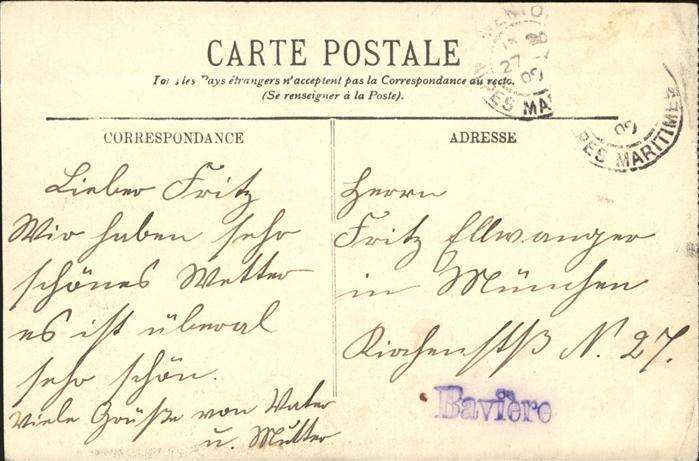 CARTE POSTALE
Tous les Pays étrangers n'acceptent pas la Correspondance au recto.
(Se renseigner à la Poste).
CORRESPONDANCE
Lieber Fritz
Wir haben sehr
schönes Wetter
es ist überal
sehr schön.
Viele Grüße von Vater
u. Mutter
ADRESSE
Herrn
Fritz Ellwanger
in München
Kirchenstß N. 27.
Bavière
MENTON
27
09
PES MAR
09
PES MARITIMES